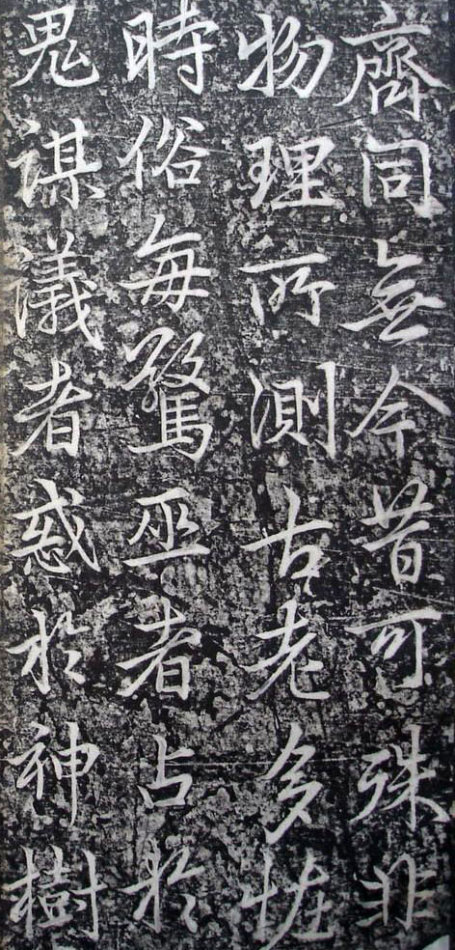 齊同無今昔可殊非
物理所測古老多怪
時俗每驚巫者占於
鬼謀議者惑於神樹